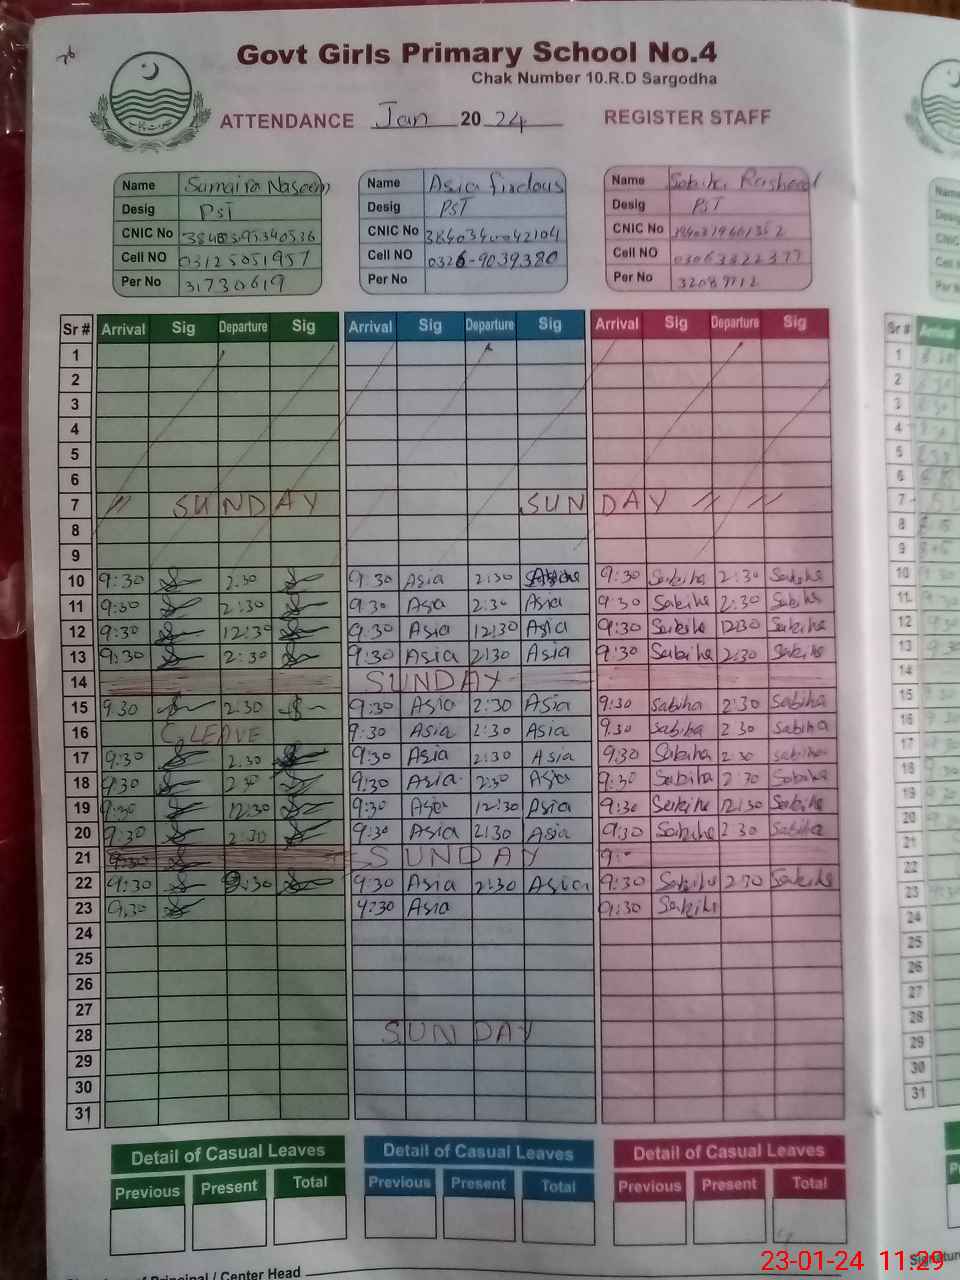 Govt Girls Primary School No.4
Chak Number 10.R.D Sargodha
ATTENDANCE Jan 20 24 REGISTER STAFF
Name Sumaira Naseem Name Asia firdous Name Sabiha Rasheed
Desig PST Desig PST Desig PST
CNIC No CNIC No 3840340042104 CNIC No
Cell NO 03125051957 Cell NO 0326-9039380 Cell NO 03063822377
Per No 31730619 Per No Per No
Sr # Arrival Sig Departure Sig Arrival Sig Departure Sig Arrival Sig Departure Sig
1
2
3
4
5
6
7 SUNDAY SUNDAY
8
9
10 9:30 2:30 9:30 Asia 2:30 9:30 Sabiha 2:30 Sabiha
11 9:30 2:30 9:30 Asia 2:30 Asia 9:30 Sabiha 2:30 Sabiha
12 9:30 12:30 9:30 Asia 12:30 Asia 9:30 Sabiha 12:30 Sabiha
13 9:30 2:30 9:30 Asia 2:30 Asia 9:30 Sabiha 2:30 Sabiha
14 SUNDAY
15 9:30 2:30 9:30 Asia 2:30 Asia 9:30 Sabiha 2:30 Sabiha
16 C.LEAVE 9:30 Asia 2:30 Asia 9:30 Sabiha 2:30 Sabiha
17 9:30 2:30 9:30 Asia 2:30 Asia 9:30 Sabiha 2:30 Sabiha
18 9:30 2:30 9:30 Asia 2:30 Asia 9:30 Sabiha 2:30 Sabiha
19 9:30 12:30 9:30 Asia 12:30 Asia 9:30 Sabiha 12:30 Sabiha
20 9:30 2:30 9:30 Asia 2:30 Asia 9:30 Sabiha 2:30 Sabiha
21 9:30 SUNDAY 9:
22 9:30 2:30 9:30 Asia 2:30 Asia 9:30 Sabiha 2:30 Sabiha
23 9:30 9:30 Asia 9:30 Sabiha
24
25
26
27
28 SUNDAY
29
30
31
Detail of Casual Leaves Detail of Casual Leaves Detail of Casual Leaves
Previous Present Total Previous Present Total Previous Present Total
Principal / Center Head
23-01-24 11:29